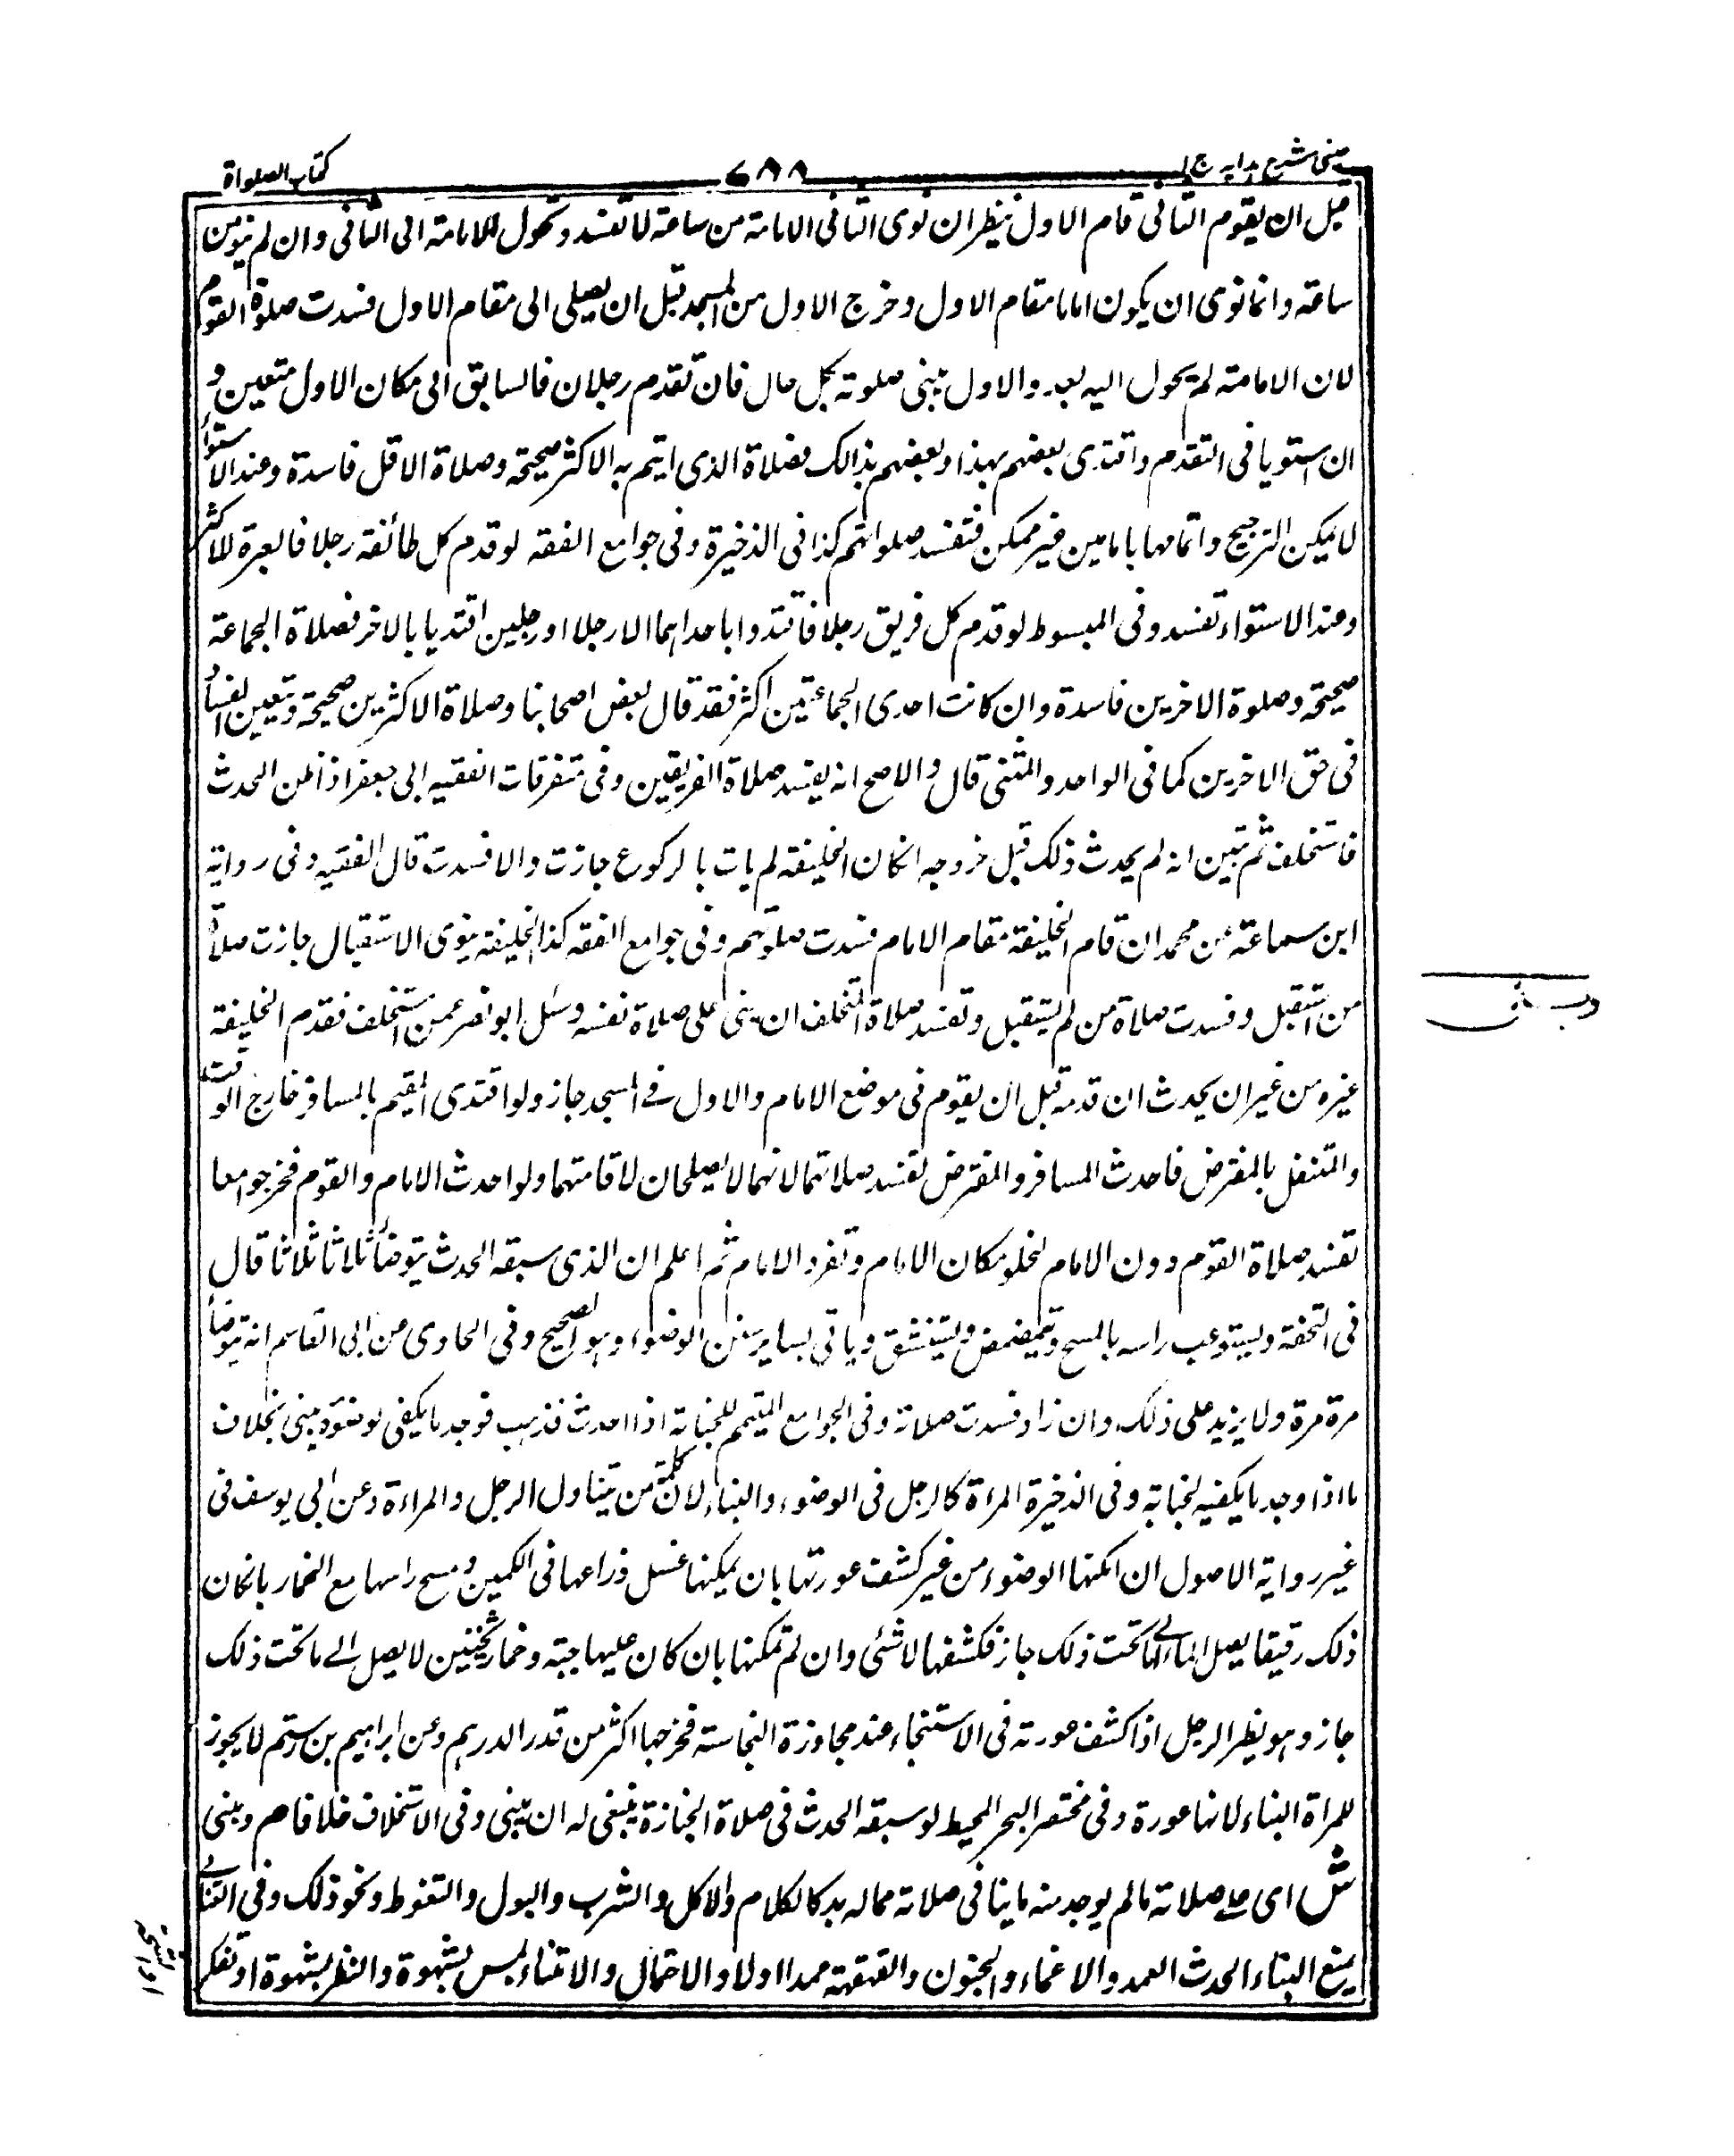 عینی شرح هدایه ج ا
٦٨٨
کتاب الصلواة
قبل ان یقوم الثانی قام الاول ینظر ان نوی الثانی الامامة من ساعة لا تفسد وتحول الامامة الی الثانی وان لم ینو من
ساعة وانما نوی ان یکون اماما مقام الاول وخرج الاول من المسجد قبل ان یصلی الی مقام الاول فسدت صلوة القوم
لان الامامة لم یحول الیه بعد والاول یبنی صلوته بکل حال فان تقدم رجلان فالسابق الی مکان الاول متعین و
ان استویا فی التقدم واقتدی بعضهم بهذا وبعضهم بذالک فصلاة الذی ایتم به الاکثر صحیحة وصلاة الاقل فاسدة وعند الاستوأ
لا یمکن الترجیح واتمامها بامامین غیر ممکن فتفسد صلواتهم کذا فی الذخیرة وفی جوامع الفقه لو قدم کل طائفة رجلا فالعبرة للاکثر
وعند الاستواء تفسد وفی المبسوط لو قدم کل فریق رجلا فاقتدوا باحداهما الا رجلا او رجلین اقتدیا بالاخر فصلاة الجماعة
صحیحة وصلوة الاخرین فاسدة وان کانت احدی الجماعتین اکثر فقد قال بعض اصحابنا وصلاة الاکثرین صحیحة ویتعین الفساد
فی حق الاخرین کما فی الواحد والمثنی قال والاصح انه یفسد صلاة الفریقین وفی متفرقات الفقیه ابی جعفر اذا ظن الحدث
فاستخلف ثم تبین انه لم یحدث ذلک قبل خروجه انکان الخلیفة لم یات بالرکوع جازت والا فسدت قال الفقیه وفی روایة
ابن سماعة عن محمد ان قام الخلیفة مقام الامام فسدت صلوتهم وفی جوامع الفقه کذا الخلیفة ینوی الاستقبال جازت صلاة
من استقبل وفسدت صلاة من لم یستقبل وتفسد صلاة المتخلف ان بنی علی صلاة نفسه وسئل ابو نصر عمن استخلف فقدم الخلیفة
غیره من غیر ان یحدث ان قدمه قبل ان یقوم فی موضع الامام والاول فے المسجد جاز ولو اقتدی المقیم بالمسافر خارج الوقت
والمتنفل بالمفترض فاحدث المسافر والمفترض تفسد صلاتهما لانهما لا یصلحان لاقامتهما ولو احدث الامام والقوم فخرجوا معا
تفسد صلاة القوم دون الامام لخلو مکان الامام وتفرد الامام ثم اعلم ان الذی سبقه الحدث یتوضأ ثلاثا ثلاثا قال
فی التحفة ویستوعب راسه بالمسح ویتمضمض ویستنشق ویاتی بسایر سنن الوضوء وهو الصحیح وفی الحاوی عن ابی القاسم انه یتوضأ
مرة مرة ولا یزید علی ذلک وان زاد فسدت صلاته وفی الجوامع المتیمم للجنابة اذا احدث فذهب فوجد ما یکفی لوضوءه یبنی بخلاف
ما اذا وجد ما یکفیه لجنابة وفی الذخیرة المراة کالرجل فی الوضوء والبناء لان کلمة من یتناول الرجل والمراءة وعن ابی یوسف فی
غیر روایة الاصول ان امکنها الوضوء من غیر کشف عورتها بان یمکنها غسل ذراعها فی الکمین ومسح راسها مع الخمار بانکان
ذلک رقیقا یصل الماء الی ما تحت ذلک جاز فکشفها لا شئی وان لم تمکنها بان کان علیها جبة وخمار ثخینین لا یصل الے ما تحت ذلک
جاز وهو نظیر الرجل اذا کشف عورته فی الاستنجاء عند مجاوزة النجاسة فخرجها اکثر من قدر الدرهم وعن ابراهیم بن رستم لا یجوز
للمراة البناء لانها عورة وفی مختصر البحر المحیط لو سبقه الحدث فی صلاة الجنازة ینبغی له ان یبنی وفی الاستخلاف خلاف ا ص م ویبنی
ش ای علے صلاته ما لم یوجد منه ما ینافی صلاته مما له بد کالکلام والاکل والشرب والبول والتغوط ونحو ذلک وفی
یمنع البناء الحدث العمد والاغماء والجنون والقهقهة عمدا اولا والاحتلام والامناء لمس بشهوة والنظر بشهوة او تفکر
ویبنی